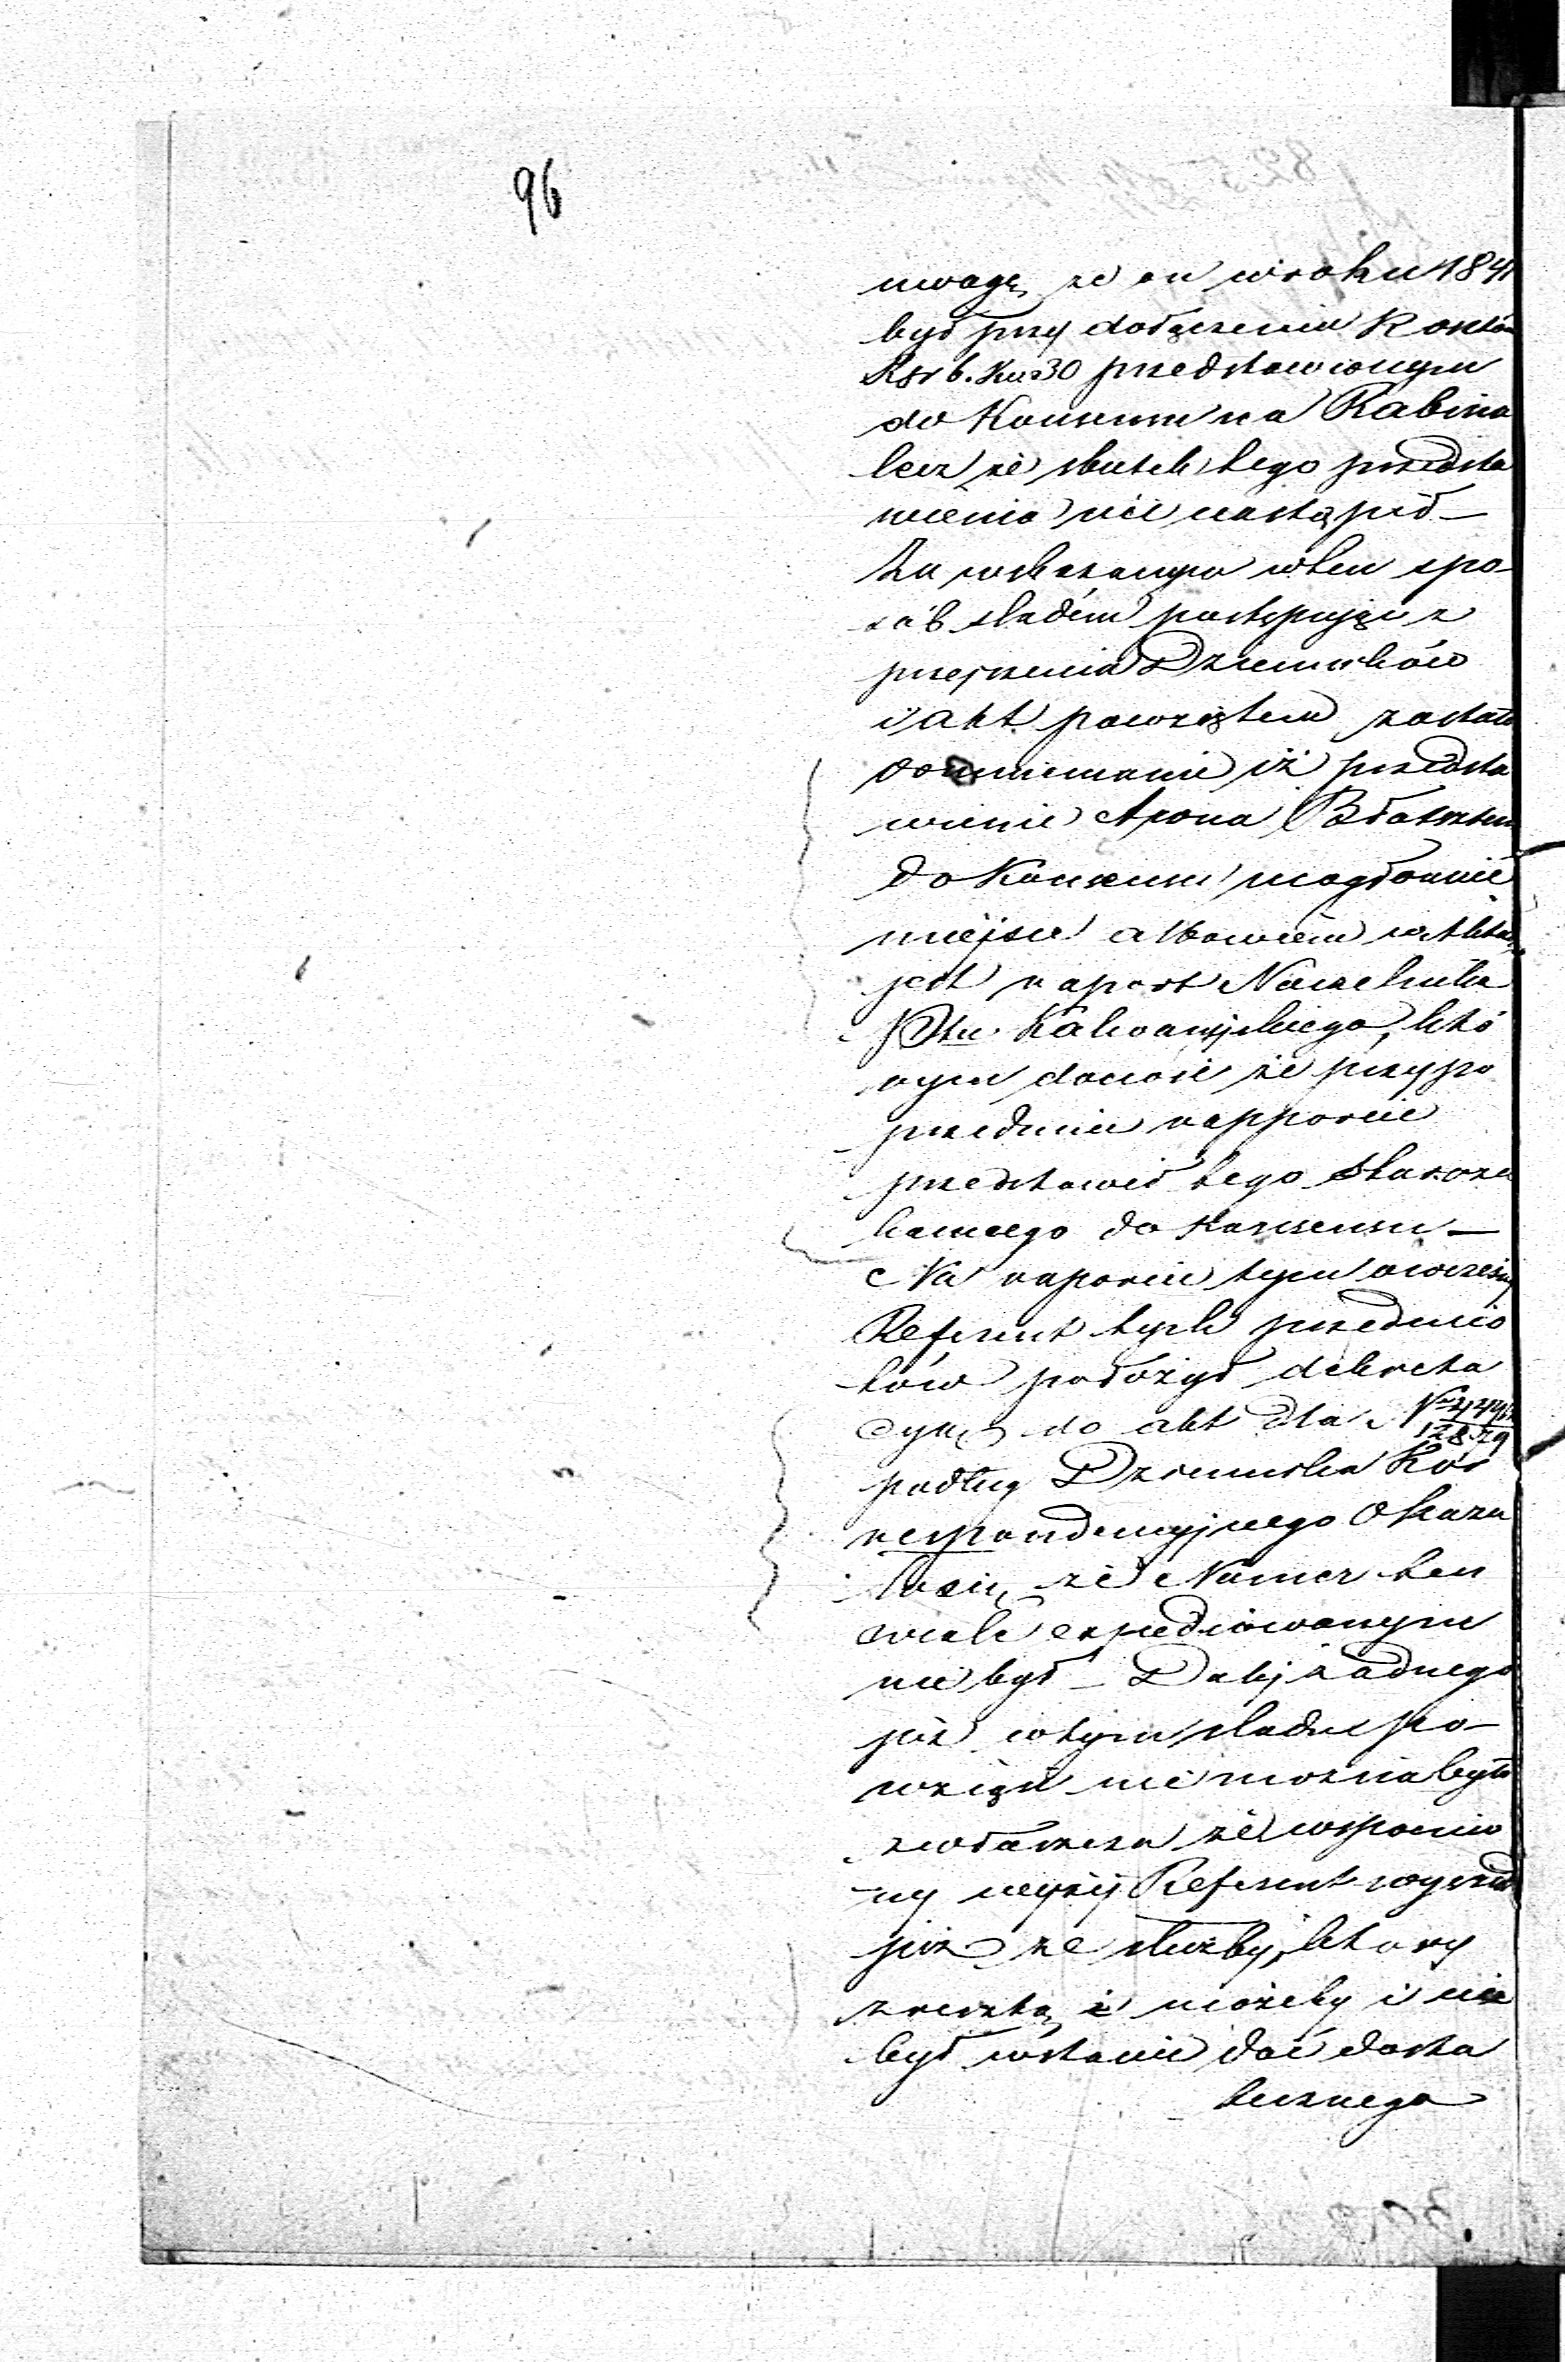 96
uwagę że on w roku 1841
był przy dołączeniu Kosztów
Rsr 6. Kus 30 przedstawionym
do Konsensu na Rabina
lecz że skutek tego przedsta
wienia nie nastąpił —
Za wskazanym w ten spo-
sób śladem postępując z
przejrzenia Dzienników
i akt powziętem zostało
domniemanie iż przedsta
wienie Arona
do Konsensu mogło mieć
miejsce albowiem w Aktach
jest raport Naczelnika
Ptu. Kalwaryjskiego, któ
rym donosi że przy po
przednim rapporcie
przedstawił tego Staroza
konnego do Konsensu —
Na raporcie tym ówczesny
Referent tych przedmio
tów położył dekreta
cyą do akt dla N
128
podług Dziennika Kor
respondencyjnego Okaza
ło się, że Numer ten
wcale expediowanym
nie był — Dalej żadnego
już w tym śladu po-
wziąść nie można było
zwłaszcza że wspomnio
ny wyżej Referent wyszedł
już ze służby, który
zresztą i możeby i nie
był w stanie dać dosta
tecznego